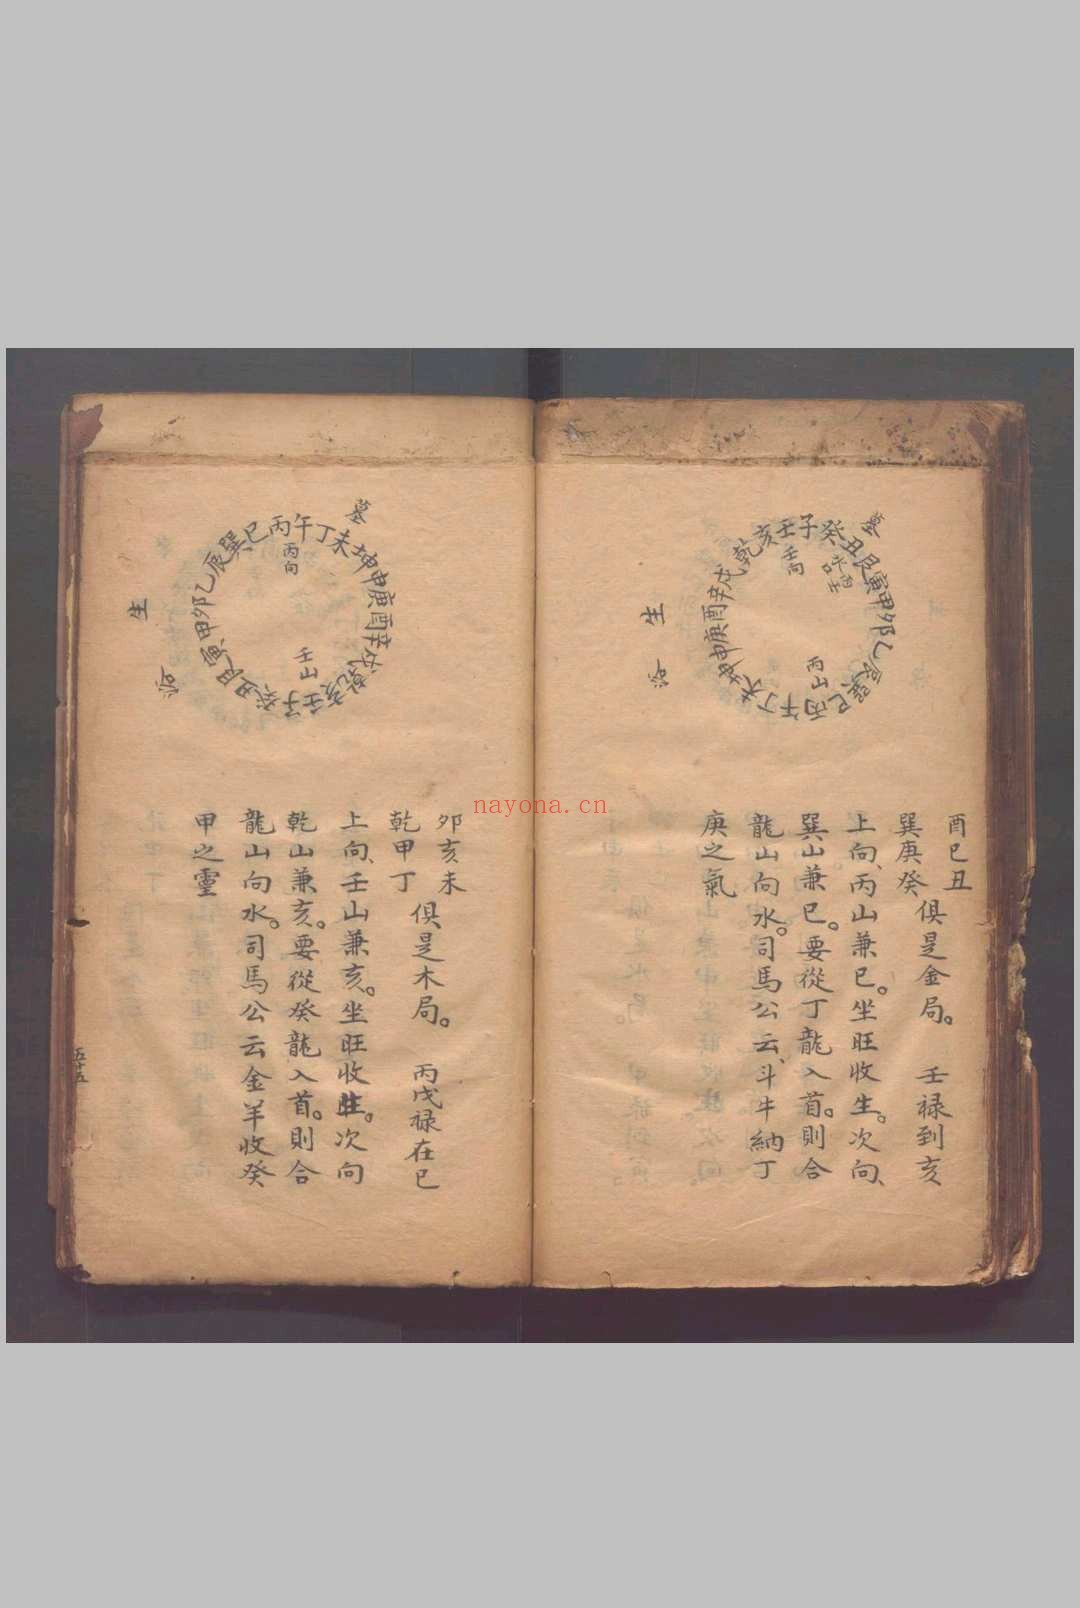 墓
乾亥壬子癸丑艮寅甲卯乙辰巽巳丙午丁未坤申庚酉辛戌
壬向
丙山
生
酉巳丑
巽庚癸
俱是金局。 壬禄到亥
上向、丙山兼巳。坐旺收生。次向、
巽山兼巳。要從丁龍入首。則合
龍山向水。司馬公云、斗牛納丁
庚之氣
墓
巽巳丙午丁未坤申庚酉辛戌乾亥壬子癸丑艮寅甲卯乙辰
丙向
壬山
生
卯亥未
乾甲丁
俱是木局。 丙戊禄在巳
上向、壬山兼亥。坐旺收生。次向
乾山兼亥。要從癸龍入首。則合
龍山向水。司馬公云金羊收癸
甲之靈
五十五
nayona.cn